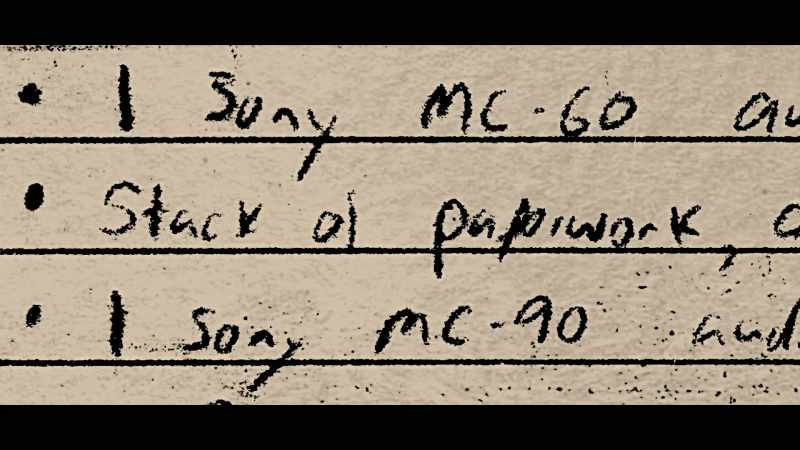 • 1 Sony MC-60 au
• Stack of paperwork, a
• 1 Sony MC-90 aud